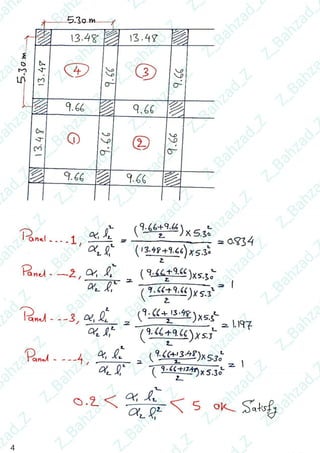 5.30 m
13.48 13.48
5.30 m
13.48 4 9.66 3 9.66
9.66 9.66
13.48 1 9.66 2 9.66
9.66 9.66
Panel ----1, α₁ l₂² / α₂ l₁² = ((9.66+9.66)/2 × 5.30²) / ((13.48+9.66)/2 × 5.30²) = 0.834
Panel ---2, α₁ l₂² / α₂ l₁² = ((9.66+9.66)/2 × 5.30²) / ((9.66+9.66)/2 × 5.3²) = 1
Panel ---3, α₁ l₂² / α₂ l₁² = ((9.66+13.48)/2 × 5.3²) / ((9.66+9.66)/2 × 5.3²) = 1.197
Panel ----4, α₁ l₂² / α₂ l₁² = ((9.66+13.48)/2 × 5.30²) / ((9.66+13.48)/2 × 5.30²) = 1
0.2 < α₁ l₂² / α₂ l₁² < 5 OK Satisfy
4
Z_Bahzad_Z